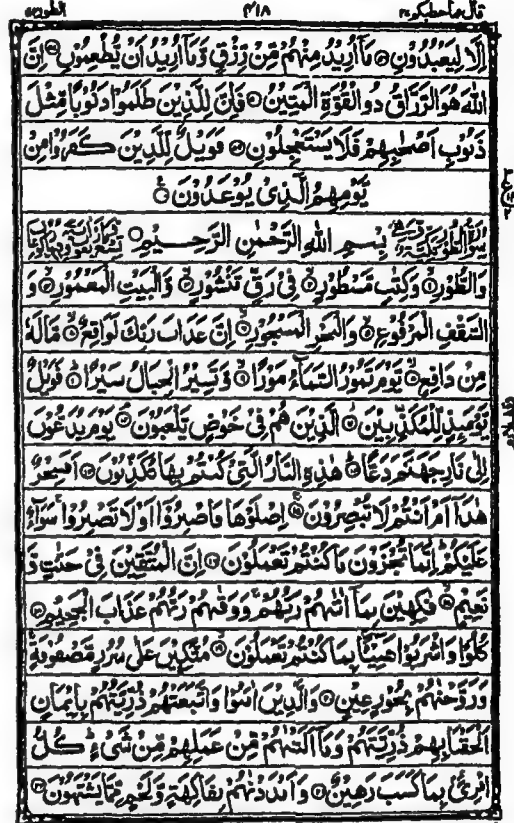 قال فما خطبكم ٢٧ ٤١٨ الطور ٥٢
اِلَّا لِيَعْبُدُوْنِ ۝ مَاۤ اُرِيْدُ مِنْهُمْ مِّنْ رِّزْقٍ وَّمَاۤ اُرِيْدُ اَنْ يُّطْعِمُوْنِ ۝ اِنَّ
اللّٰهَ هُوَ الرَّزَّاقُ ذُو الْقُوَّةِ الْمَتِيْنُ ۝ فَاِنَّ لِلَّذِيْنَ ظَلَمُوْا ذَنُوْبًا مِّثْلَ
ذَنُوْبِ اَصْحٰبِهِمْ فَلَا يَسْتَعْجِلُوْنِ ۝ فَوَيْلٌ لِّلَّذِيْنَ كَفَرُوْا مِنْ
يَّوْمِهِمُ الَّذِيْ يُوْعَدُوْنَ ۝
بِسْمِ اللّٰهِ الرَّحْمٰنِ الرَّحِيْمِ ۝
وَالطُّوْرِ ۝ وَكِتٰبٍ مَّسْطُوْرٍ ۝ فِيْ رَقٍّ مَّنْشُوْرٍ ۝ وَّالْبَيْتِ الْمَعْمُوْرِ ۝ وَ
السَّقْفِ الْمَرْفُوْعِ ۝ وَالْبَحْرِ الْمَسْجُوْرِ ۝ اِنَّ عَذَابَ رَبِّكَ لَوَاقِعٌ ۝ مَّا لَهٗ
مِنْ دَافِعٍ ۝ يَّوْمَ تَمُوْرُ السَّمَآءُ مَوْرًا ۝ وَّتَسِيْرُ الْجِبَالُ سَيْرًا ۝ فَوَيْلٌ
يَّوْمَئِذٍ لِّلْمُكَذِّبِيْنَ ۝ الَّذِيْنَ هُمْ فِيْ خَوْضٍ يَّلْعَبُوْنَ ۝ يَوْمَ يُدَعُّوْنَ
اِلٰى نَارِ جَهَنَّمَ دَعًّا ۝ هٰذِهِ النَّارُ الَّتِيْ كُنْتُمْ بِهَا تُكَذِّبُوْنَ ۝ اَفَسِحْرٌ
هٰذَاۤ اَمْ اَنْتُمْ لَا تُبْصِرُوْنَ ۝ اِصْلَوْهَا فَاصْبِرُوْۤا اَوْ لَا تَصْبِرُوْا ۚ سَوَآءٌ
عَلَيْكُمْ ؕ اِنَّمَا تُجْزَوْنَ مَا كُنْتُمْ تَعْمَلُوْنَ ۝ اِنَّ الْمُتَّقِيْنَ فِيْ جَنّٰتٍ وَّ
نَعِيْمٍ ۝ فٰكِهِيْنَ بِمَاۤ اٰتٰىهُمْ رَبُّهُمْ ۚ وَوَقٰىهُمْ رَبُّهُمْ عَذَابَ الْجَحِيْمِ ۝
كُلُوْا وَاشْرَبُوْا هَنِيْٓئًا بِمَا كُنْتُمْ تَعْمَلُوْنَ ۝ مُتَّكِـِٕيْنَ عَلٰى سُرُرٍ مَّصْفُوْفَةٍ ۚ
وَزَوَّجْنٰهُمْ بِحُوْرٍ عِيْنٍ ۝ وَالَّذِيْنَ اٰمَنُوْا وَاتَّبَعَتْهُمْ ذُرِّيَّتُهُمْ بِاِيْمَانٍ
اَلْحَقْنَا بِهِمْ ذُرِّيَّتَهُمْ وَمَاۤ اَلَتْنٰهُمْ مِّنْ عَمَلِهِمْ مِّنْ شَيْءٍ ؕ كُلُّ
امْرِئٍۭ بِمَا كَسَبَ رَهِيْنٌ ۝ وَاَمْدَدْنٰهُمْ بِفَاكِهَةٍ وَّلَحْمٍ مِّمَّا يَشْتَهُوْنَ ۝